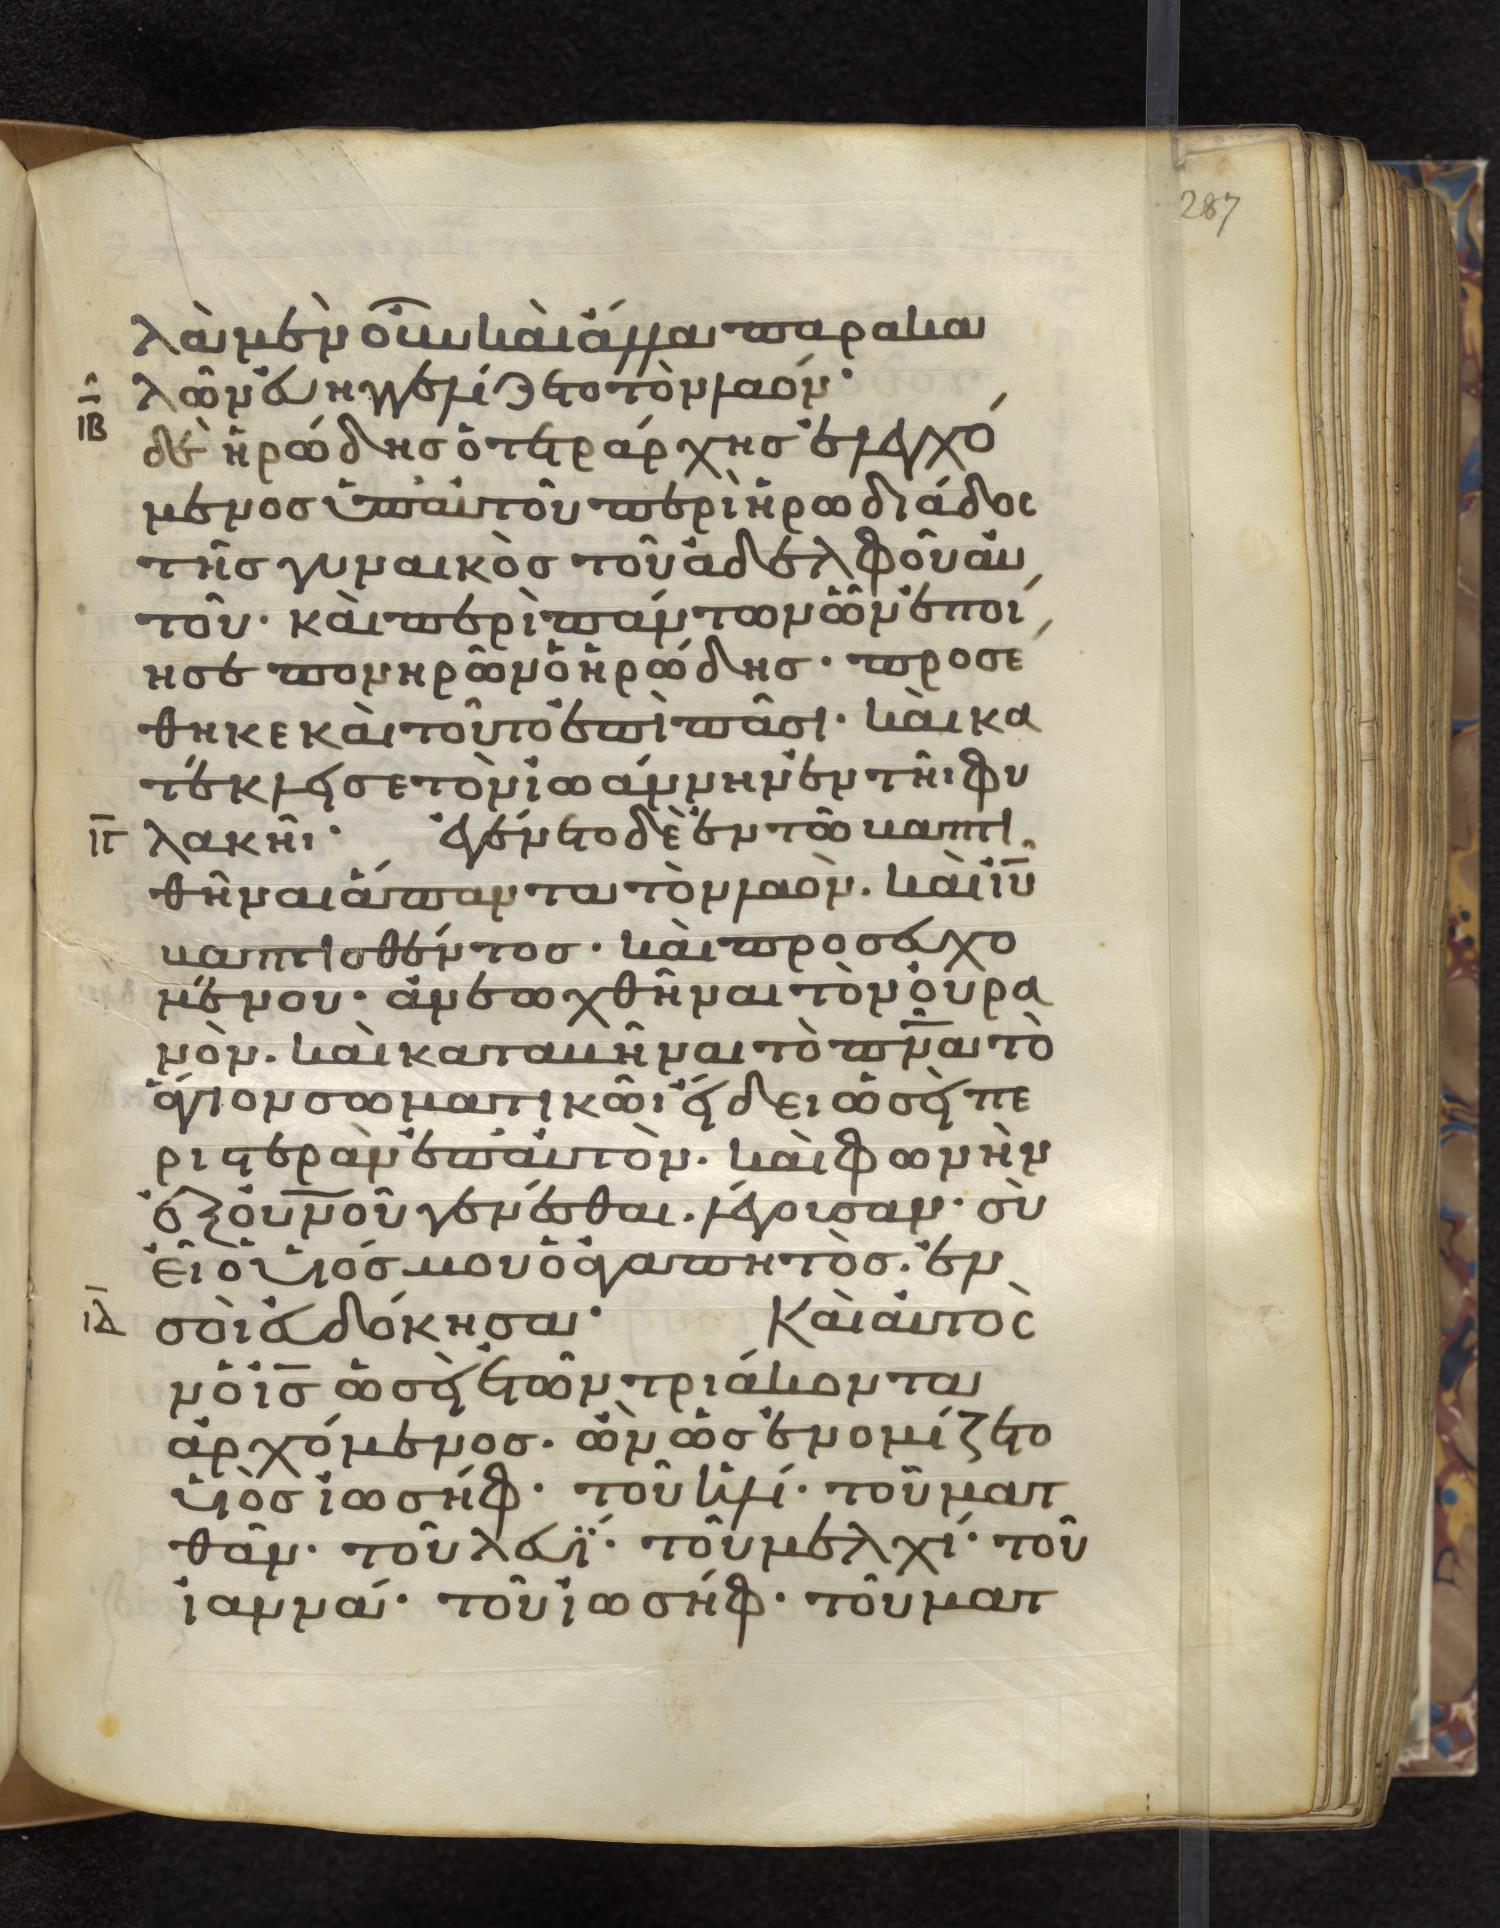 287
λὰ μὲν οὖν καὶ ἄλλα παρακα
λῶν εὐηγγελίζετο τὸν λαόν·
ΙΒ δὲ ἡρώδης ὁ τετράρχης ἐλεγχό
μενος ὑπ' αὐτοῦ περὶ ἡρωδιάδος
τῆς γυναικὸς τοῦ ἀδελφοῦ αὐ
τοῦ· καὶ περὶ πάντων ὧν ἐποί
ησε πονηρῶν ὁ ἡρώδης· προσέ
θηκε καὶ τοῦτο ἐπὶ πᾶσι· καὶ κα
τέκλεισε τὸν ἰωάννην ἐν τῆι φυ
ΙΓ λακῆι· ἐγένετο δὲ ἐν τῶ βαπτι
σθῆναι ἅπαντα τὸν λαὸν. καὶ ἰῦ
βαπτισθέντος· καὶ προσευχο
μένου· ἀνεωχθῆναι τὸν οὐρα
νὸν. καὶ καταβῆναι τὸ πνᾶ τὸ
ἅγιον σωματικῶι εἴδει ὡσεὶ πε
ριστερὰν ἐπ' αὐτὸν. καὶ φωνὴν
ἐξ οὐνοῦ γενέσθαι. λέγουσαν· σὺ
εἶ ὁ υἱός μου ὁ ἀγαπητὸς. ἐν
ΙΔ σοὶ εὐδόκησα· Καὶ αὐτὸς
ἦν ὁ ἰς ὡσεὶ ἐτῶν τριάκοντα
ἀρχόμενος. ὢν ὡς ἐνομίζετο
υἱὸς ἰωσήφ· τοῦ ἡλί· τοῦ ματ
θὰν· τοῦ λευΐ· τοῦ μελχί· τοῦ
ἰαννά· τοῦ ἰωσήφ· τοῦ ματ